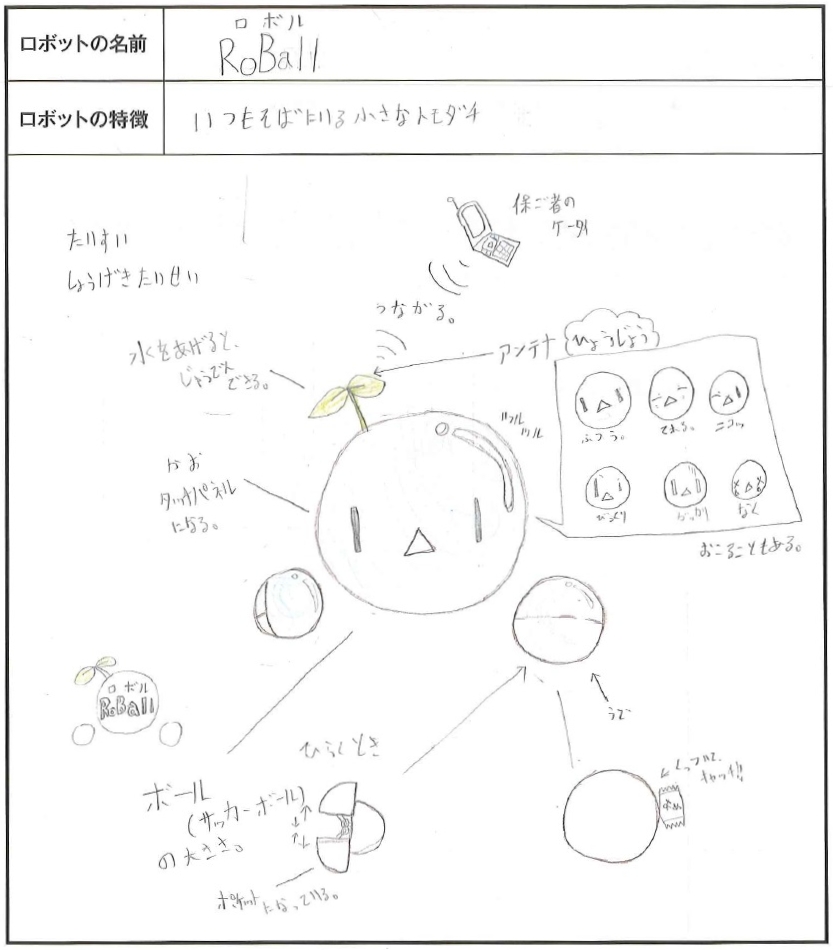 ロボットの名前
ロボル
RoBall
ロボットの特徴
いつもそばにいる小さなトモダチ
たいすい
しょうげきたいせい
保ご者の
ケータイ
つながる。
水をあげると、
じょうでん
できる。
アンテナ
ひょうじょう
ふつう。
てれる。
ニコッ
びっくり
がっかり
なく
おこることもある。
ツルツル
かお
タッチパネル
になる。
うで
ロボル
RoBall
ひらくとき
ボール
(サッカーボール)
の大きさ。
ポケットになっている。
くっついて、
キャッチ!!